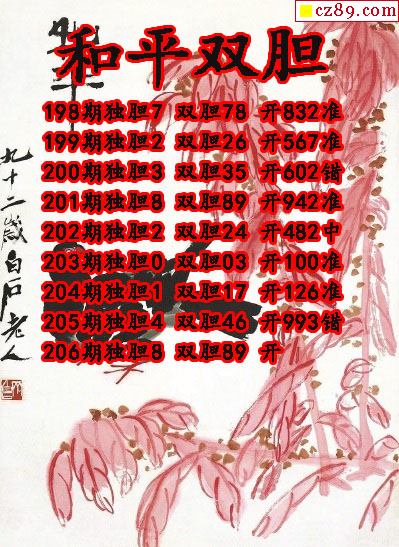 cz89.com
和平双胆
198期独胆7 双胆78 开832准
199期独胆2 双胆26 开567准
200期独胆3 双胆35 开602错
201期独胆8 双胆89 开942准
202期独胆2 双胆24 开482中
203期独胆0 双胆03 开100准
204期独胆1 双胆17 开126准
205期独胆4 双胆46 开993错
206期独胆8 双胆89 开
九十二岁白石老人